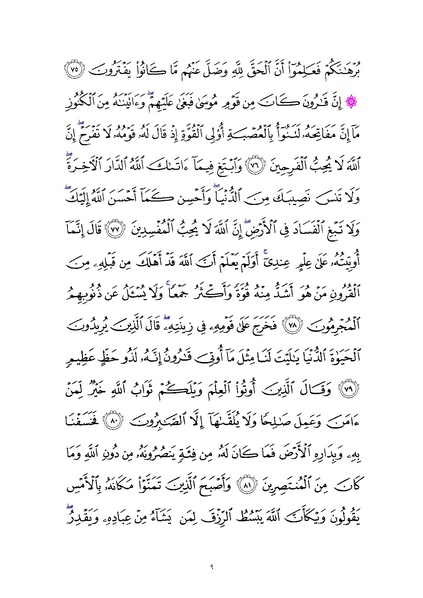 بُرْهَـٰنَكُمْ فَعَلِمُوٓا۟ أَنَّ ٱلْحَقَّ لِلَّهِ وَضَلَّ عَنْهُم مَّا كَانُوا۟ يَفْتَرُونَ ﴿٧٥﴾
۞ إِنَّ قَـٰرُونَ كَانَ مِن قَوْمِ مُوسَىٰ فَبَغَىٰ عَلَيْهِمْ ۖ وَءَاتَيْنَـٰهُ مِنَ ٱلْكُنُوزِ
مَآ إِنَّ مَفَاتِحَهُۥ لَتَنُوٓأُ بِٱلْعُصْبَةِ أُو۟لِى ٱلْقُوَّةِ إِذْ قَالَ لَهُۥ قَوْمُهُۥ لَا تَفْرَحْ ۖ إِنَّ
ٱللَّهَ لَا يُحِبُّ ٱلْفَرِحِينَ ﴿٧٦﴾ وَٱبْتَغِ فِيمَآ ءَاتَىٰكَ ٱللَّهُ ٱلدَّارَ ٱلْـَٔاخِرَةَ ۖ
وَلَا تَنسَ نَصِيبَكَ مِنَ ٱلدُّنْيَا ۖ وَأَحْسِن كَمَآ أَحْسَنَ ٱللَّهُ إِلَيْكَ ۖ
وَلَا تَبْغِ ٱلْفَسَادَ فِى ٱلْأَرْضِ ۖ إِنَّ ٱللَّهَ لَا يُحِبُّ ٱلْمُفْسِدِينَ ﴿٧٧﴾ قَالَ إِنَّمَآ
أُوتِيتُهُۥ عَلَىٰ عِلْمٍ عِندِىٓ ۚ أَوَلَمْ يَعْلَمْ أَنَّ ٱللَّهَ قَدْ أَهْلَكَ مِن قَبْلِهِۦ مِنَ
ٱلْقُرُونِ مَنْ هُوَ أَشَدُّ مِنْهُ قُوَّةً وَأَكْثَرُ جَمْعًا ۚ وَلَا يُسْـَٔلُ عَن ذُنُوبِهِمُ
ٱلْمُجْرِمُونَ ﴿٧٨﴾ فَخَرَجَ عَلَىٰ قَوْمِهِۦ فِى زِينَتِهِۦ ۖ قَالَ ٱلَّذِينَ يُرِيدُونَ
ٱلْحَيَوٰةَ ٱلدُّنْيَا يَـٰلَيْتَ لَنَا مِثْلَ مَآ أُوتِىَ قَـٰرُونُ إِنَّهُۥ لَذُو حَظٍّ عَظِيمٍ
﴿٧٩﴾ وَقَالَ ٱلَّذِينَ أُوتُوا۟ ٱلْعِلْمَ وَيْلَكُمْ ثَوَابُ ٱللَّهِ خَيْرٌ لِّمَنْ
ءَامَنَ وَعَمِلَ صَـٰلِحًا وَلَا يُلَقَّىٰهَآ إِلَّا ٱلصَّـٰبِرُونَ ﴿٨٠﴾ فَخَسَفْنَا
بِهِۦ وَبِدَارِهِ ٱلْأَرْضَ فَمَا كَانَ لَهُۥ مِن فِئَةٍ يَنصُرُونَهُۥ مِن دُونِ ٱللَّهِ وَمَا
كَانَ مِنَ ٱلْمُنتَصِرِينَ ﴿٨١﴾ وَأَصْبَحَ ٱلَّذِينَ تَمَنَّوْا۟ مَكَانَهُۥ بِٱلْأَمْسِ
يَقُولُونَ وَيْكَأَنَّ ٱللَّهَ يَبْسُطُ ٱلرِّزْقَ لِمَن يَشَآءُ مِنْ عِبَادِهِۦ وَيَقْدِرُ ۖ
٩